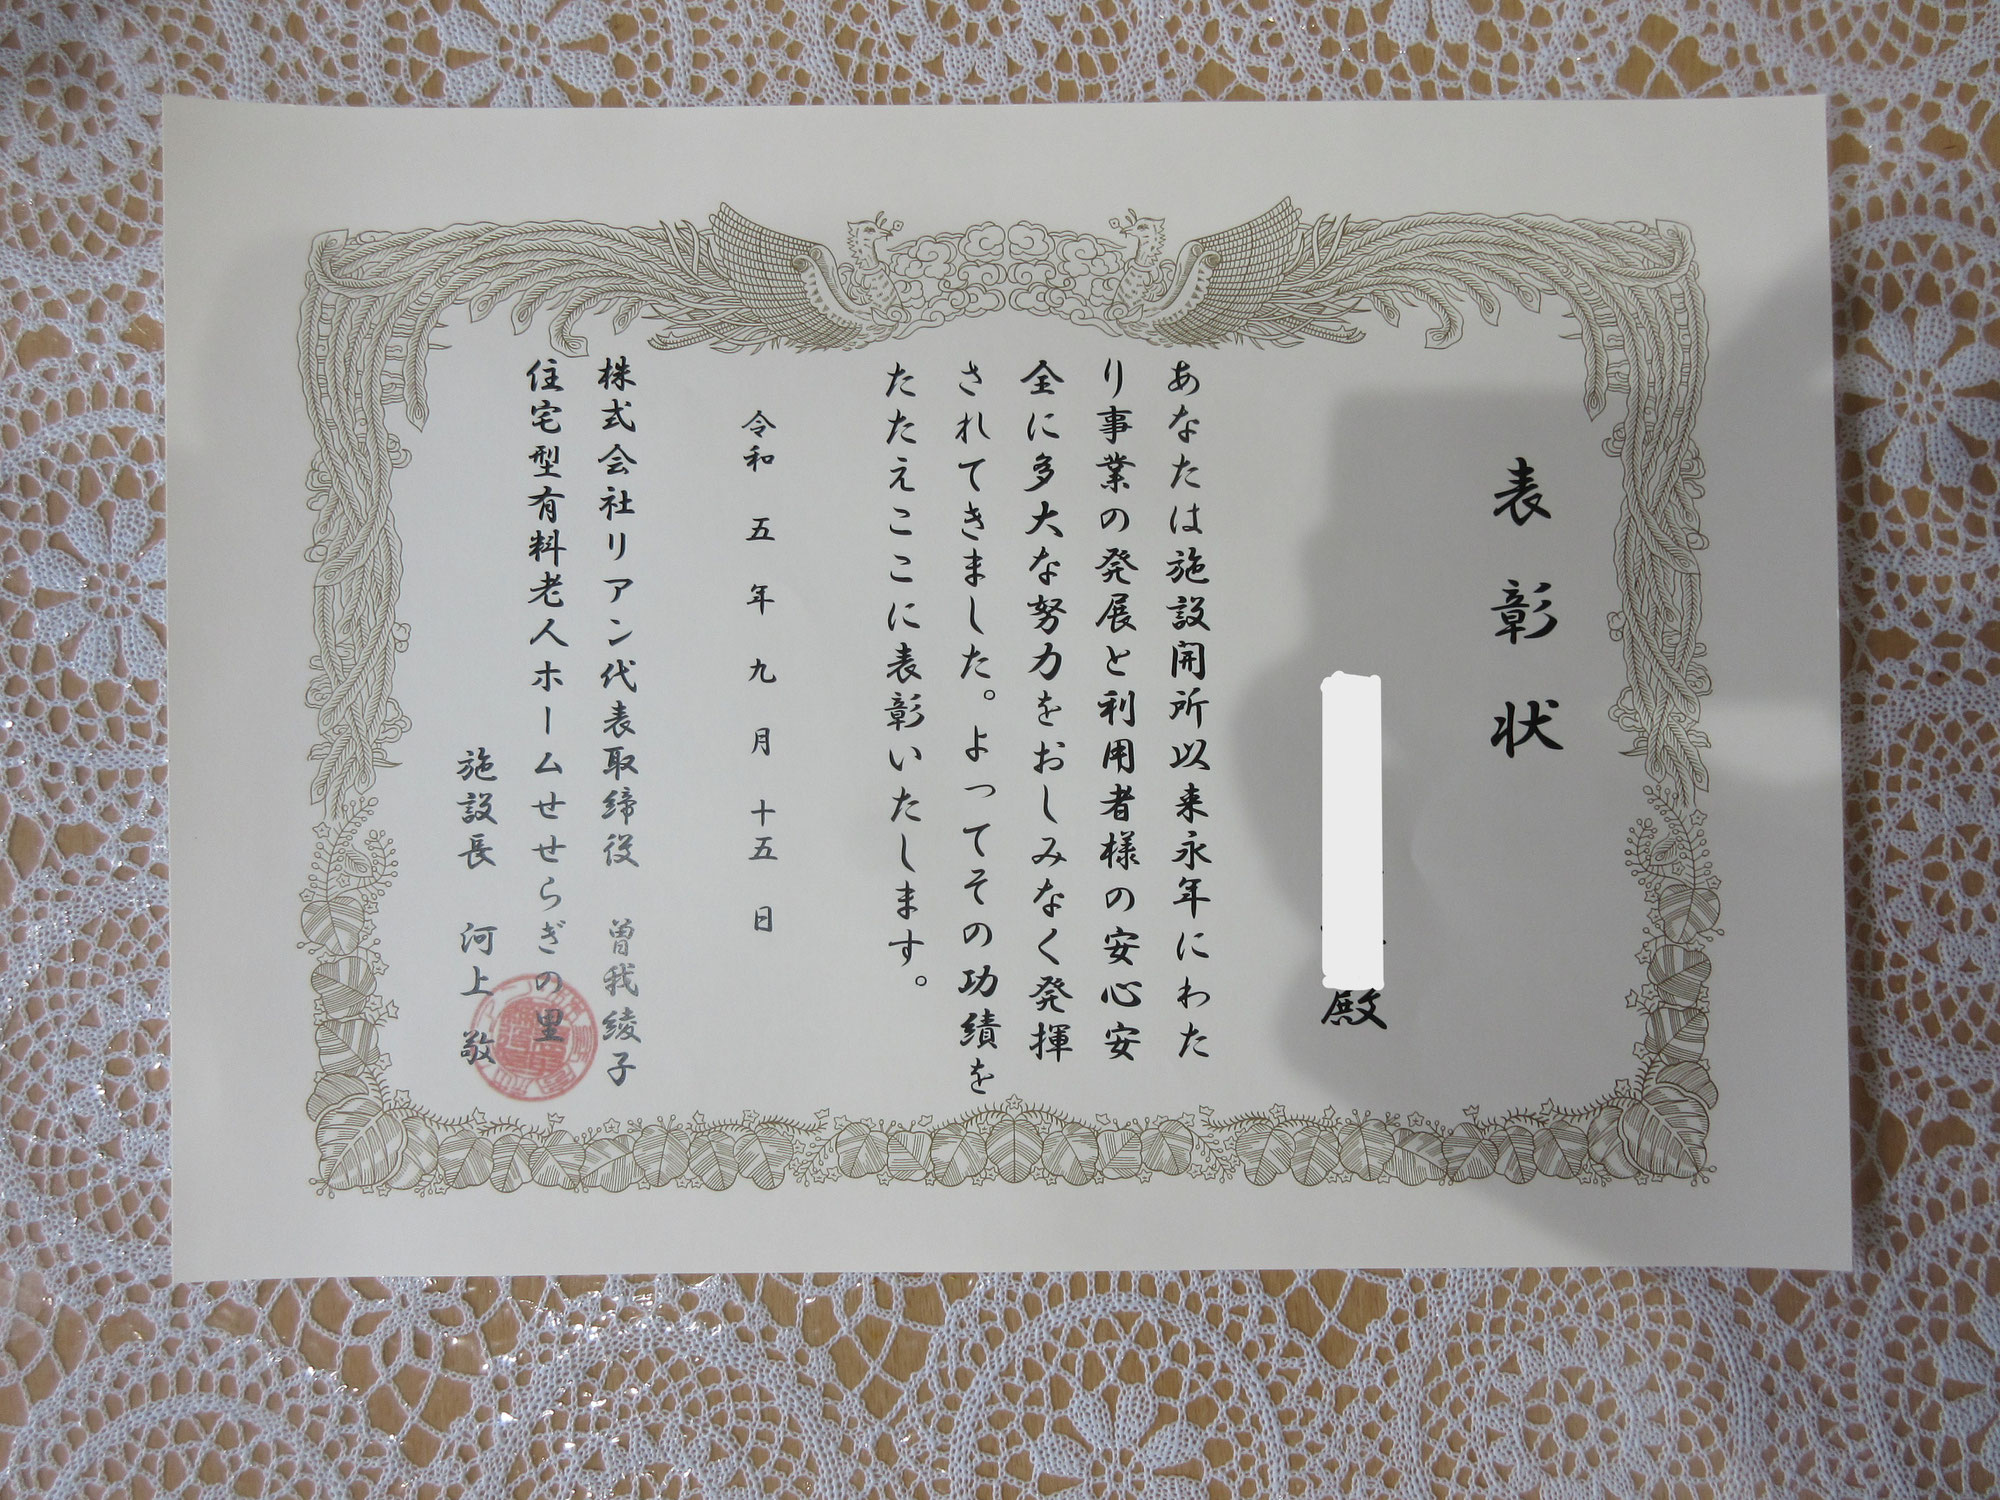 表彰状
殿
あなたは施設開所以来永年にわた
り事業の発展と利用者様の安心安
全に多大な努力をおしみなく発揮
されてきました。よってその功績を
たたえここに表彰いたします。
令和 五 年 九 月 十五 日
株式会社リアン代表取締役 曽我綾子
住宅型有料老人ホームせせらぎの里
施設長 河上 敬